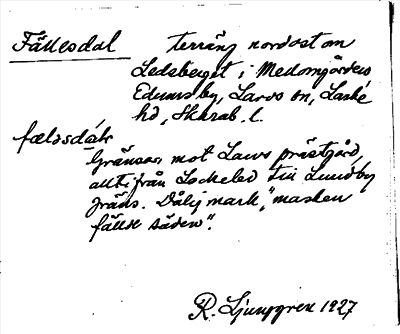 Fällesdal terräng nordost om
Ledsberget i Mellomgårdens
Edumsby, Larvs sn, Laske
hd, Skarab. l.
fælsdár
Gränsar mot Larvs prästgård,
allt ifrån Lockeled till Lundby
gräns. Dålig mark, "masken
fällde säden".
R. Ljunggren 1927